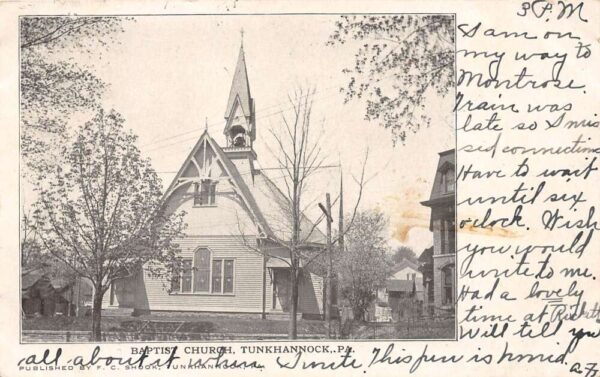 3 P.M
I am on
my way to
Montrose.
Train was
late so I mis
sed connections
Have to wait
until six
o'clock. Wish
you would
write to me.
Had a lovely
time at
Will tell you
BAPTIST CHURCH, TUNKHANNOCK, PA.
all about it when I write. This pen is horrid
PUBLISHED BY F. C. SHOOK, TUNKHANNOCK, PA.